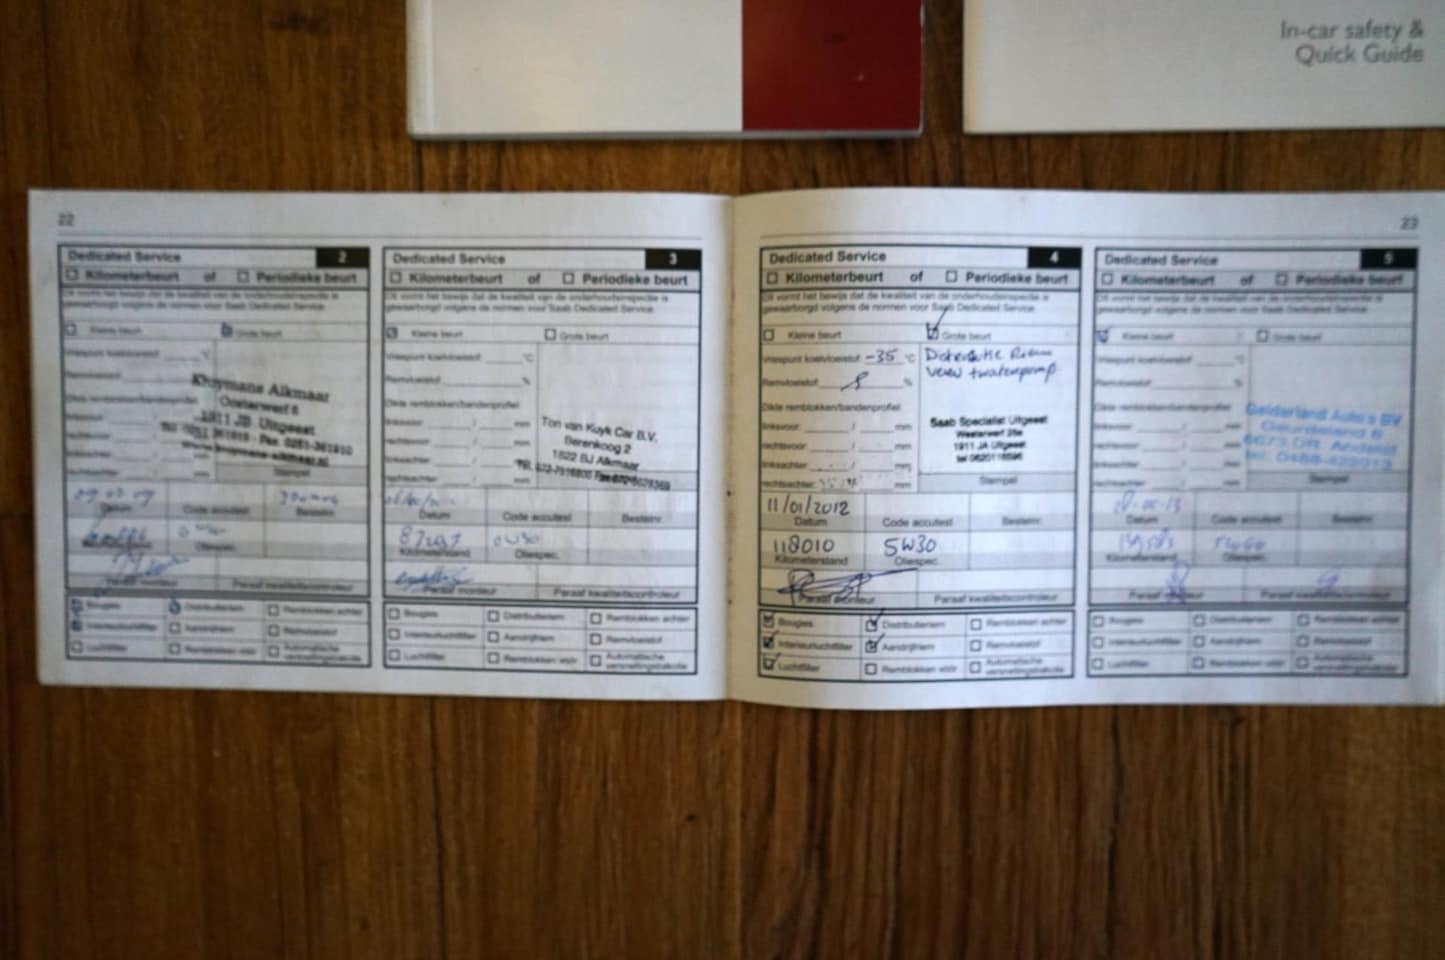 In-car safety &
Quick Guide
22
23
Dedicated Service 2
Kilometerbeurt of Periodieke beurt
Dit vormt het bewijs dat de kwaliteit van de onderhoudsinspectie is
gewaarborgd volgens de normen voor Saab Dedicated Service.
Kleine beurt Grote beurt
Vriespunt koelvloeistof °C
Remvloeistof
Dikte remblokken/bandenprofiel
linksvoor /
rechtsvoor /
linksachter /
rechtsachter / mm
Kruymans Alkmaar
Oosterwerf 6
1911 JB Uitgeest
Stempel
Datum Code accutest Bestelnr.
Oliespec.
Paraaf monteur Paraaf kwaliteitscontroleur
Bougies Distributieriem Remblokken achter
Interieurluchtfilter Aandrijfriem Remvloeistof
Luchtfilter Remblokken vóór Automatische
versnellingsbakolie
Dedicated Service 3
Kilometerbeurt of Periodieke beurt
Dit vormt het bewijs dat de kwaliteit van de onderhoudsinspectie is
gewaarborgd volgens de normen voor Saab Dedicated Service.
Kleine beurt Grote beurt
Vriespunt koelvloeistof °C
Remvloeistof %
Dikte remblokken/bandenprofiel
linksvoor / mm
rechtsvoor / mm
linksachter / mm
rechtsachter / mm
Ton van Kuyk Car B.V.
Berenkoog 2
1822 BJ Alkmaar
Datum Code accutest Bestelnr.
0W30
Kilometerstand Oliespec.
Paraaf monteur Paraaf kwaliteitscontroleur
Bougies Distributieriem Remblokken achter
Interieurluchtfilter Aandrijfriem Remvloeistof
Luchtfilter Remblokken vóór Automatische
versnellingsbakolie
Dedicated Service 4
Kilometerbeurt of Periodieke beurt
Dit vormt het bewijs dat de kwaliteit van de onderhoudsinspectie is
gewaarborgd volgens de normen voor Saab Dedicated Service.
Kleine beurt Grote beurt
Vriespunt koelvloeistof -35 °C
Remvloeistof %
Dikte remblokken/bandenprofiel
linksvoor / mm
rechtsvoor / mm
linksachter / mm
rechtsachter / mm
Distributie Riem
Saab Specialist Uitgeest
Westerwerf 25e
1911 JA Uitgeest
tel 0620118596
Stempel
11/01/2012
Datum Code accutest Bestelnr.
118010 5W30
Kilometerstand Oliespec.
Paraaf monteur Paraaf kwaliteitscontroleur
Bougies Distributieriem Remblokken achter
Interieurluchtfilter Aandrijfriem Remvloeistof
Luchtfilter Remblokken vóór Automatische
versnellingsbakolie
Dedicated Service 5
Kilometerbeurt of Periodieke beurt
Dit vormt het bewijs dat de kwaliteit van de onderhoudsinspectie is
gewaarborgd volgens de normen voor Saab Dedicated Service.
Kleine beurt Grote beurt
Vriespunt koelvloeistof °C
Remvloeistof %
Dikte remblokken/bandenprofiel
linksvoor / mm
rechtsvoor / mm
linksachter / mm
rechtsachter / mm
Gelderland Auto's BV
Stempel
Datum Code accutest Bestelnr.
Kilometerstand Oliespec.
Paraaf monteur Paraaf kwaliteitscontroleur
Bougies Distributieriem Remblokken achter
Interieurluchtfilter Aandrijfriem Remvloeistof
Luchtfilter Remblokken vóór Automatische
versnellingsbakolie